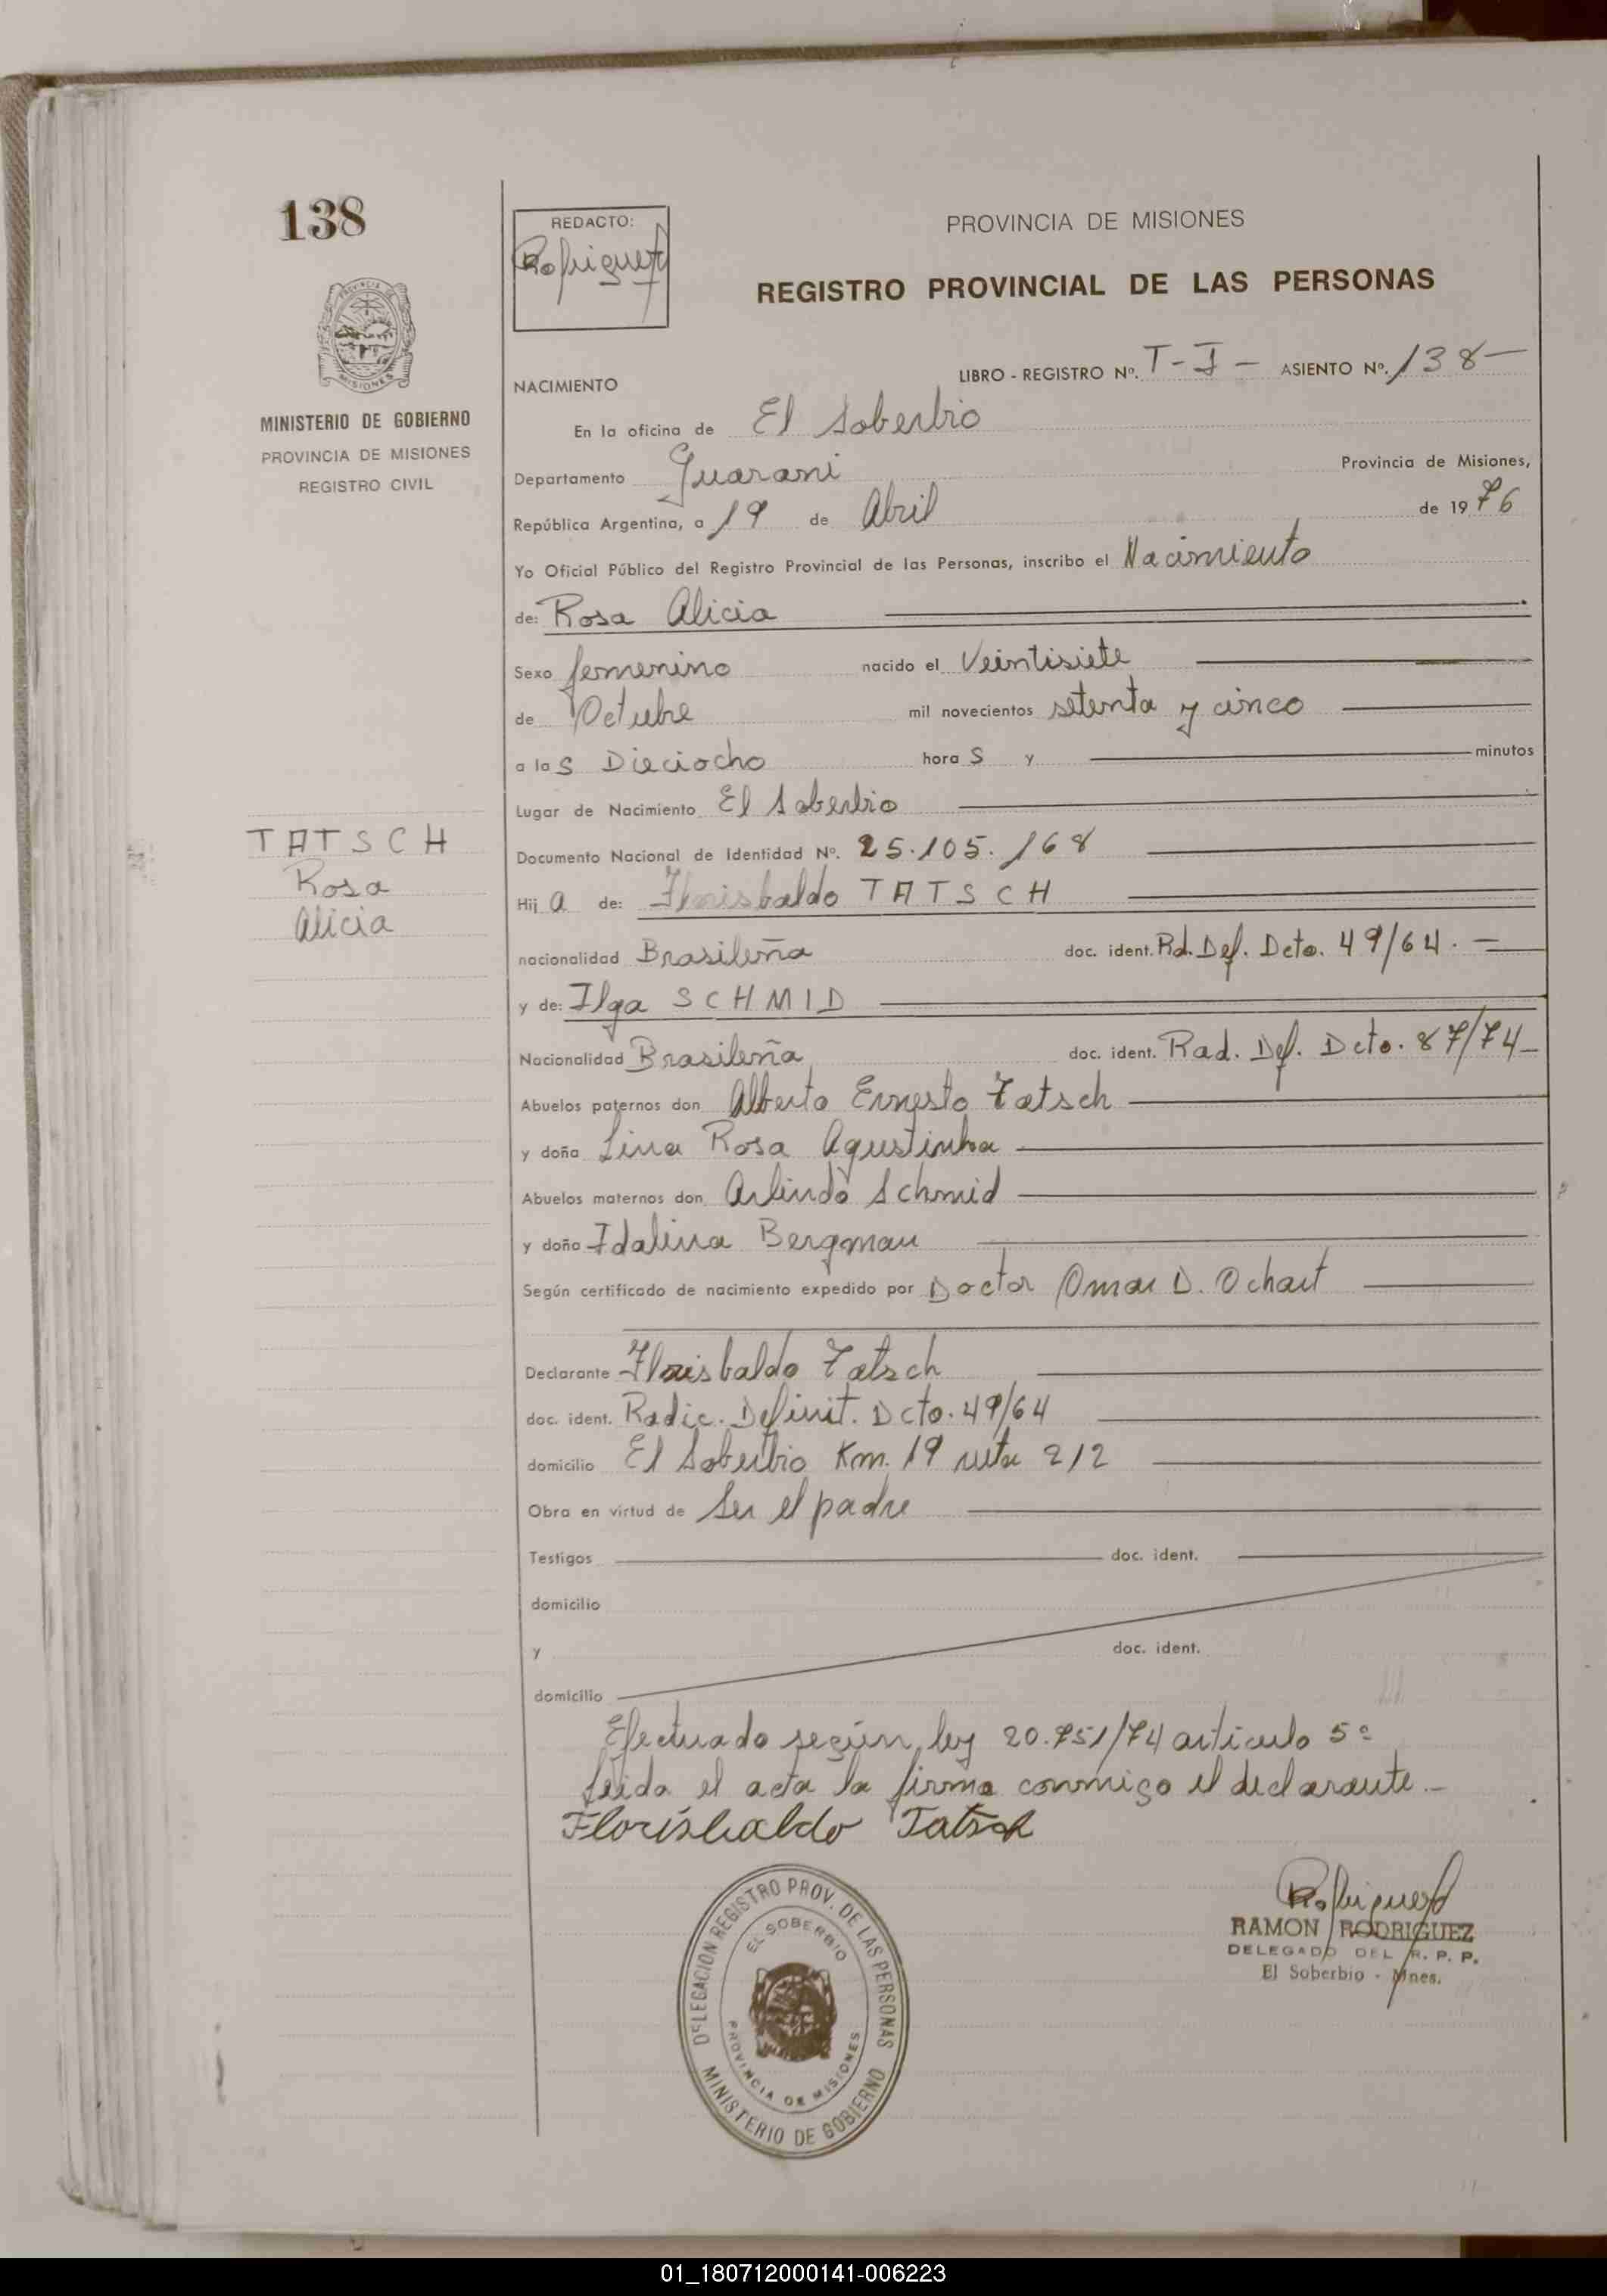 138
REDACTO:
Rodriguez
PROVINCIA DE MISIONES
REGISTRO PROVINCIAL DE LAS PERSONAS
PROVINCIA DE
MISIONES
MINISTERIO DE GOBIERNO
PROVINCIA DE MISIONES
REGISTRO CIVIL
NACIMIENTO
LIBRO - REGISTRO Nº. T - I - ASIENTO Nº. 138 -
En la oficina de El Soberbio
Departamento Guarani Provincia de Misiones,
República Argentina, a 19 de Abril de 1976
Yo Oficial Público del Registro Provincial de las Personas, inscribo el Nacimiento
de: Rosa Alicia
Sexo femenino nacido el Veintisiete
de Octubre mil novecientos setenta y cinco
a las Dieciocho horas y minutos
Lugar de Nacimiento El Soberbio
TATSCH
Rosa
Alicia
Documento Nacional de Identidad Nº. 25.105.168
Hija de: Florisbaldo TATSCH
nacionalidad Brasileña doc. ident. Rd. Def. Dcto. 49/64. -
y de: Ilga SCHMID
Nacionalidad Brasileña doc. ident. Rad. Def. Dcto. 87/74 -
Abuelos paternos don Alberto Ernesto Tatsch
y doña Lina Rosa Agustinha
Abuelos maternos don Arlindo Schmid
y doña Idalina Bergman
Según certificado de nacimiento expedido por Doctor Omar D. Ochart
Declarante Florisbaldo Tatsch
doc. ident. Radic. Definit. Dcto. 49/64
domicilio El Soberbio Km. 19 ruta 212
Obra en virtud de Ser el padre
Testigos doc. ident.
domicilio
y doc. ident.
domicilio
Efectuado según ley 20.751/74 artículo 5º
leida el acta la firma conmigo el declarante. -
Florisbaldo Tatsch
DELEGACION REGISTRO PROV. DE LAS PERSONAS
EL SOBERBIO
PROVINCIA DE MISIONES
MINISTERIO DE GOBIERNO
Rodriguez
RAMON RODRIGUEZ
DELEGADO DEL R. P. P.
El Soberbio - Mnes.
01_180712000141-006223